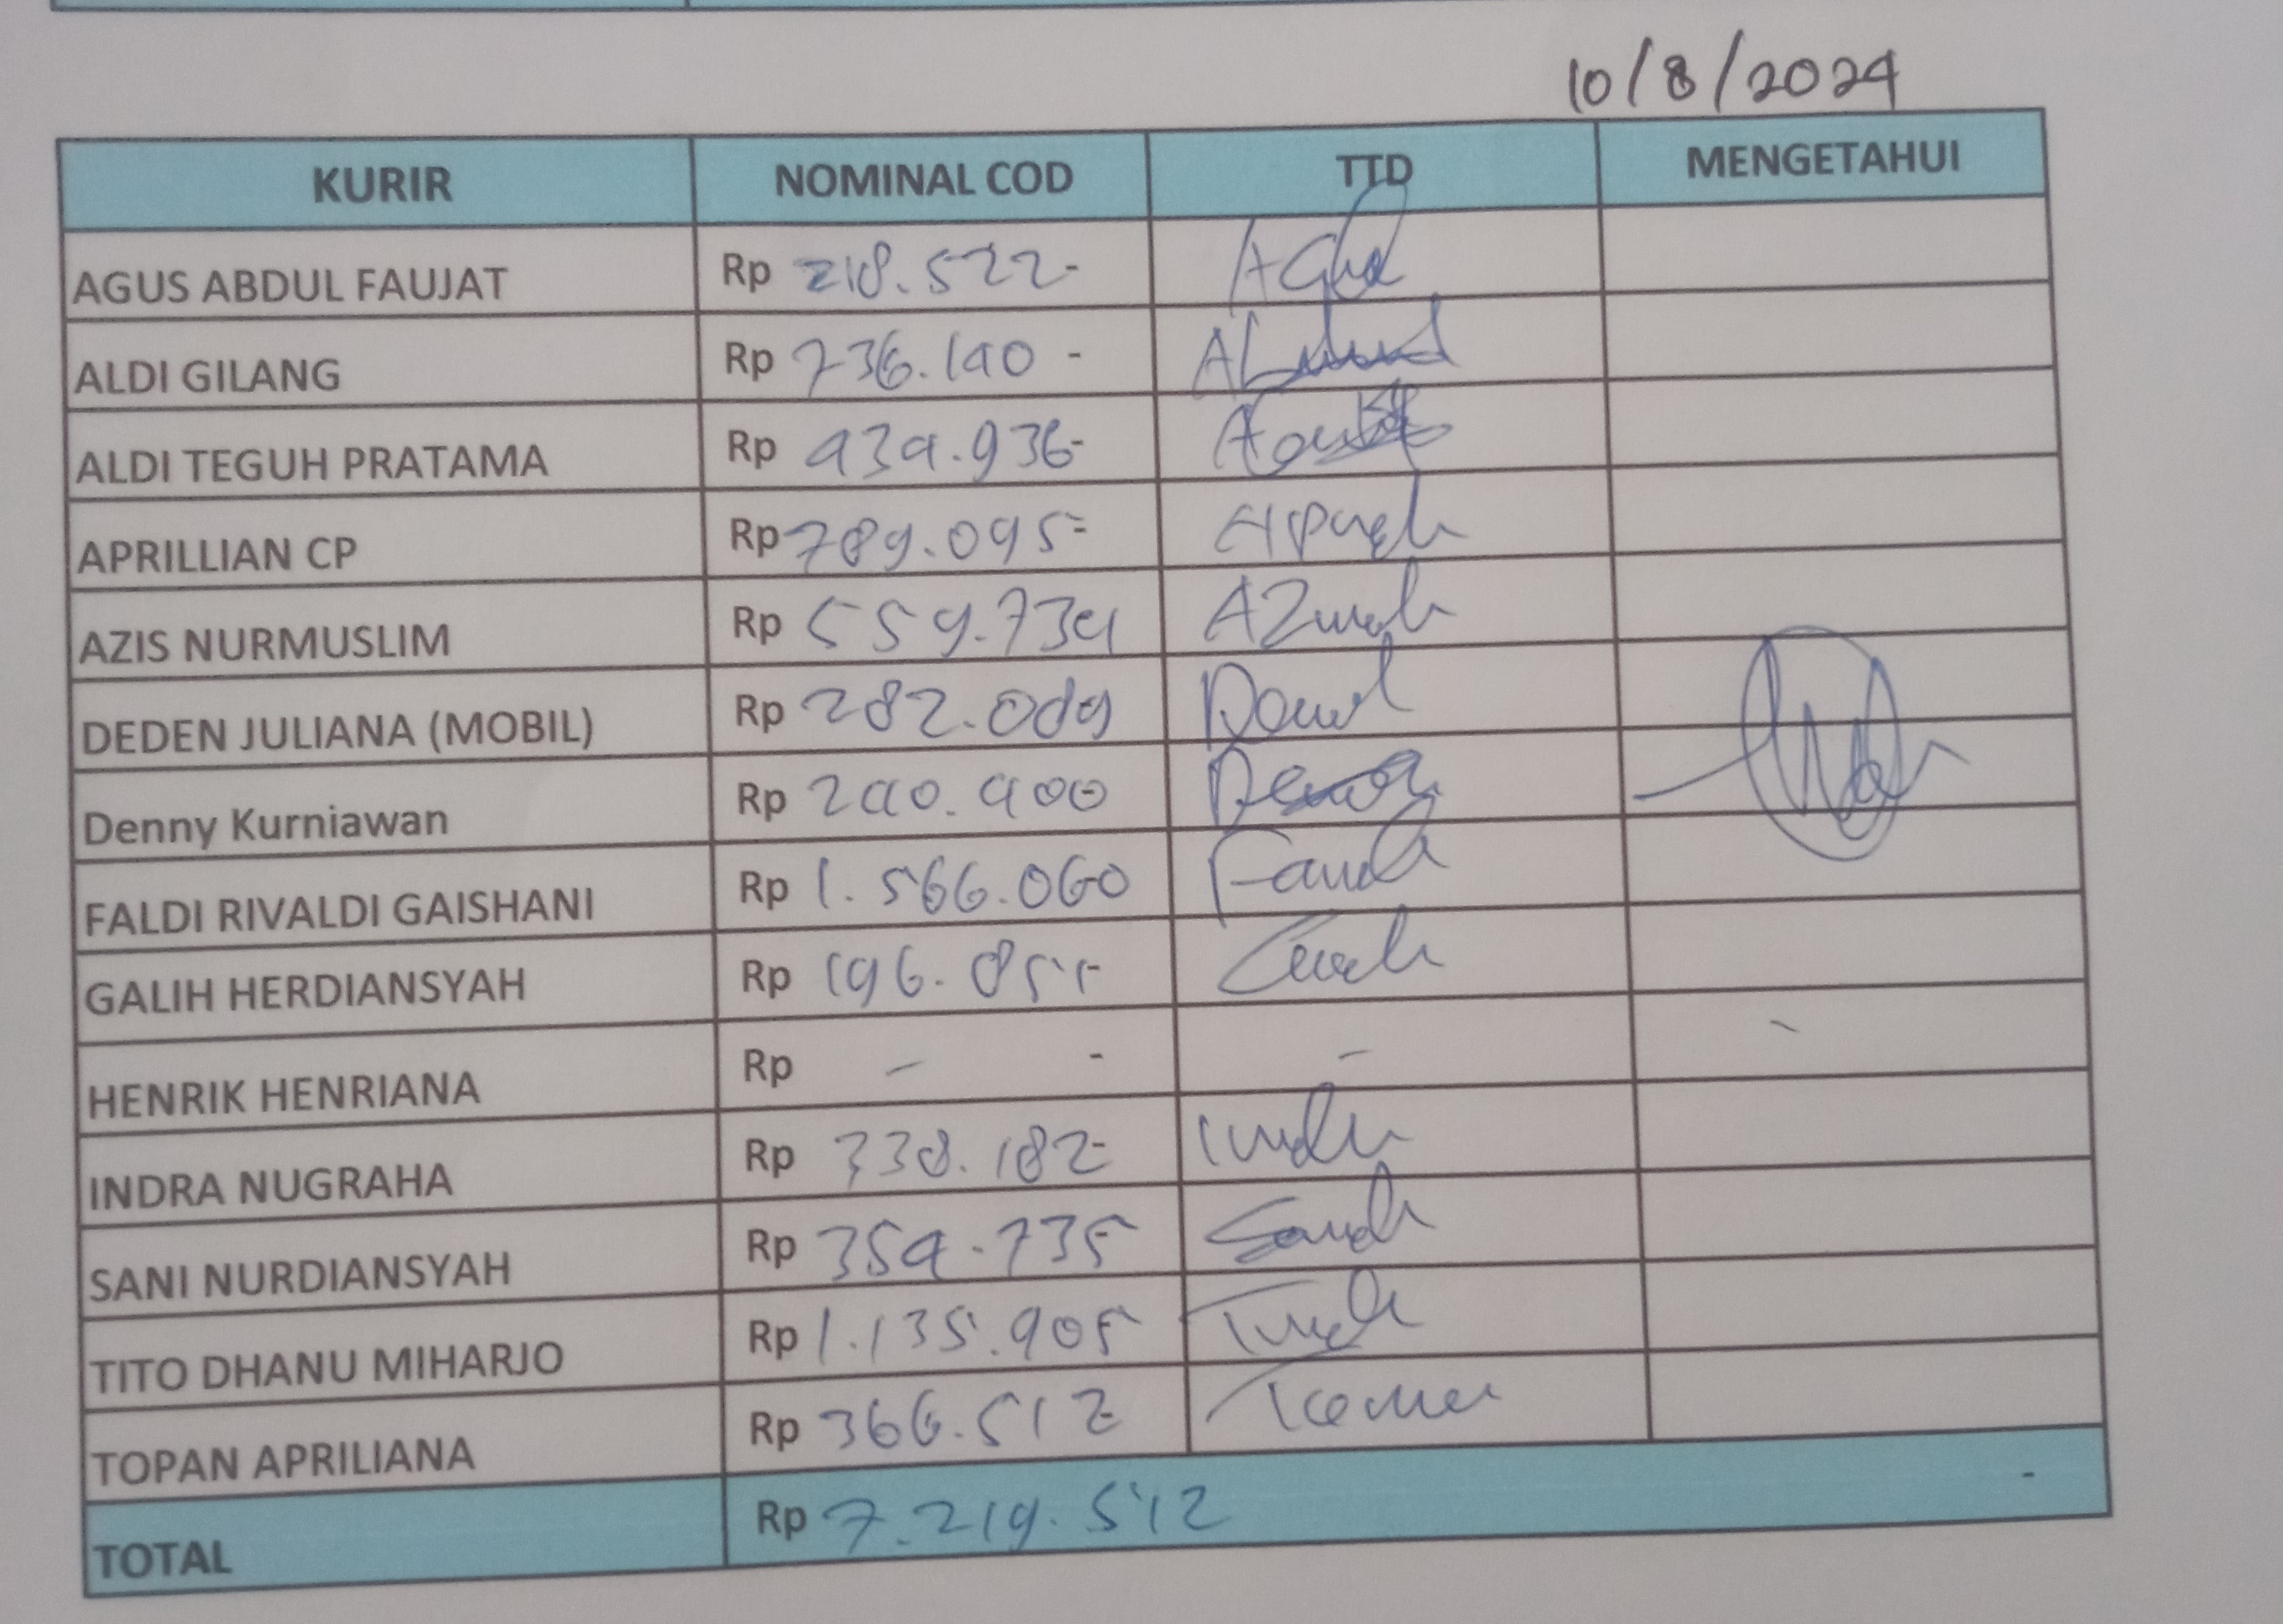 10/8/2024
KURIR NOMINAL COD TTD MENGETAHUI
AGUS ABDUL FAUJAT Rp 218.522-
ALDI GILANG Rp 736.140 -
ALDI TEGUH PRATAMA Rp 434.936-
APRILLIAN CP Rp 789.095-
AZIS NURMUSLIM Rp 559.734
DEDEN JULIANA (MOBIL) Rp 282.089
Denny Kurniawan Rp 240.400
FALDI RIVALDI GAISHANI Rp 1.566.060
GALIH HERDIANSYAH Rp
HENRIK HENRIANA Rp - - - -
INDRA NUGRAHA Rp 338.182-
SANI NURDIANSYAH Rp 354.735
TITO DHANU MIHARJO Rp 1.135.905
TOPAN APRILIANA Rp 366.512
TOTAL Rp 7.219.512 -